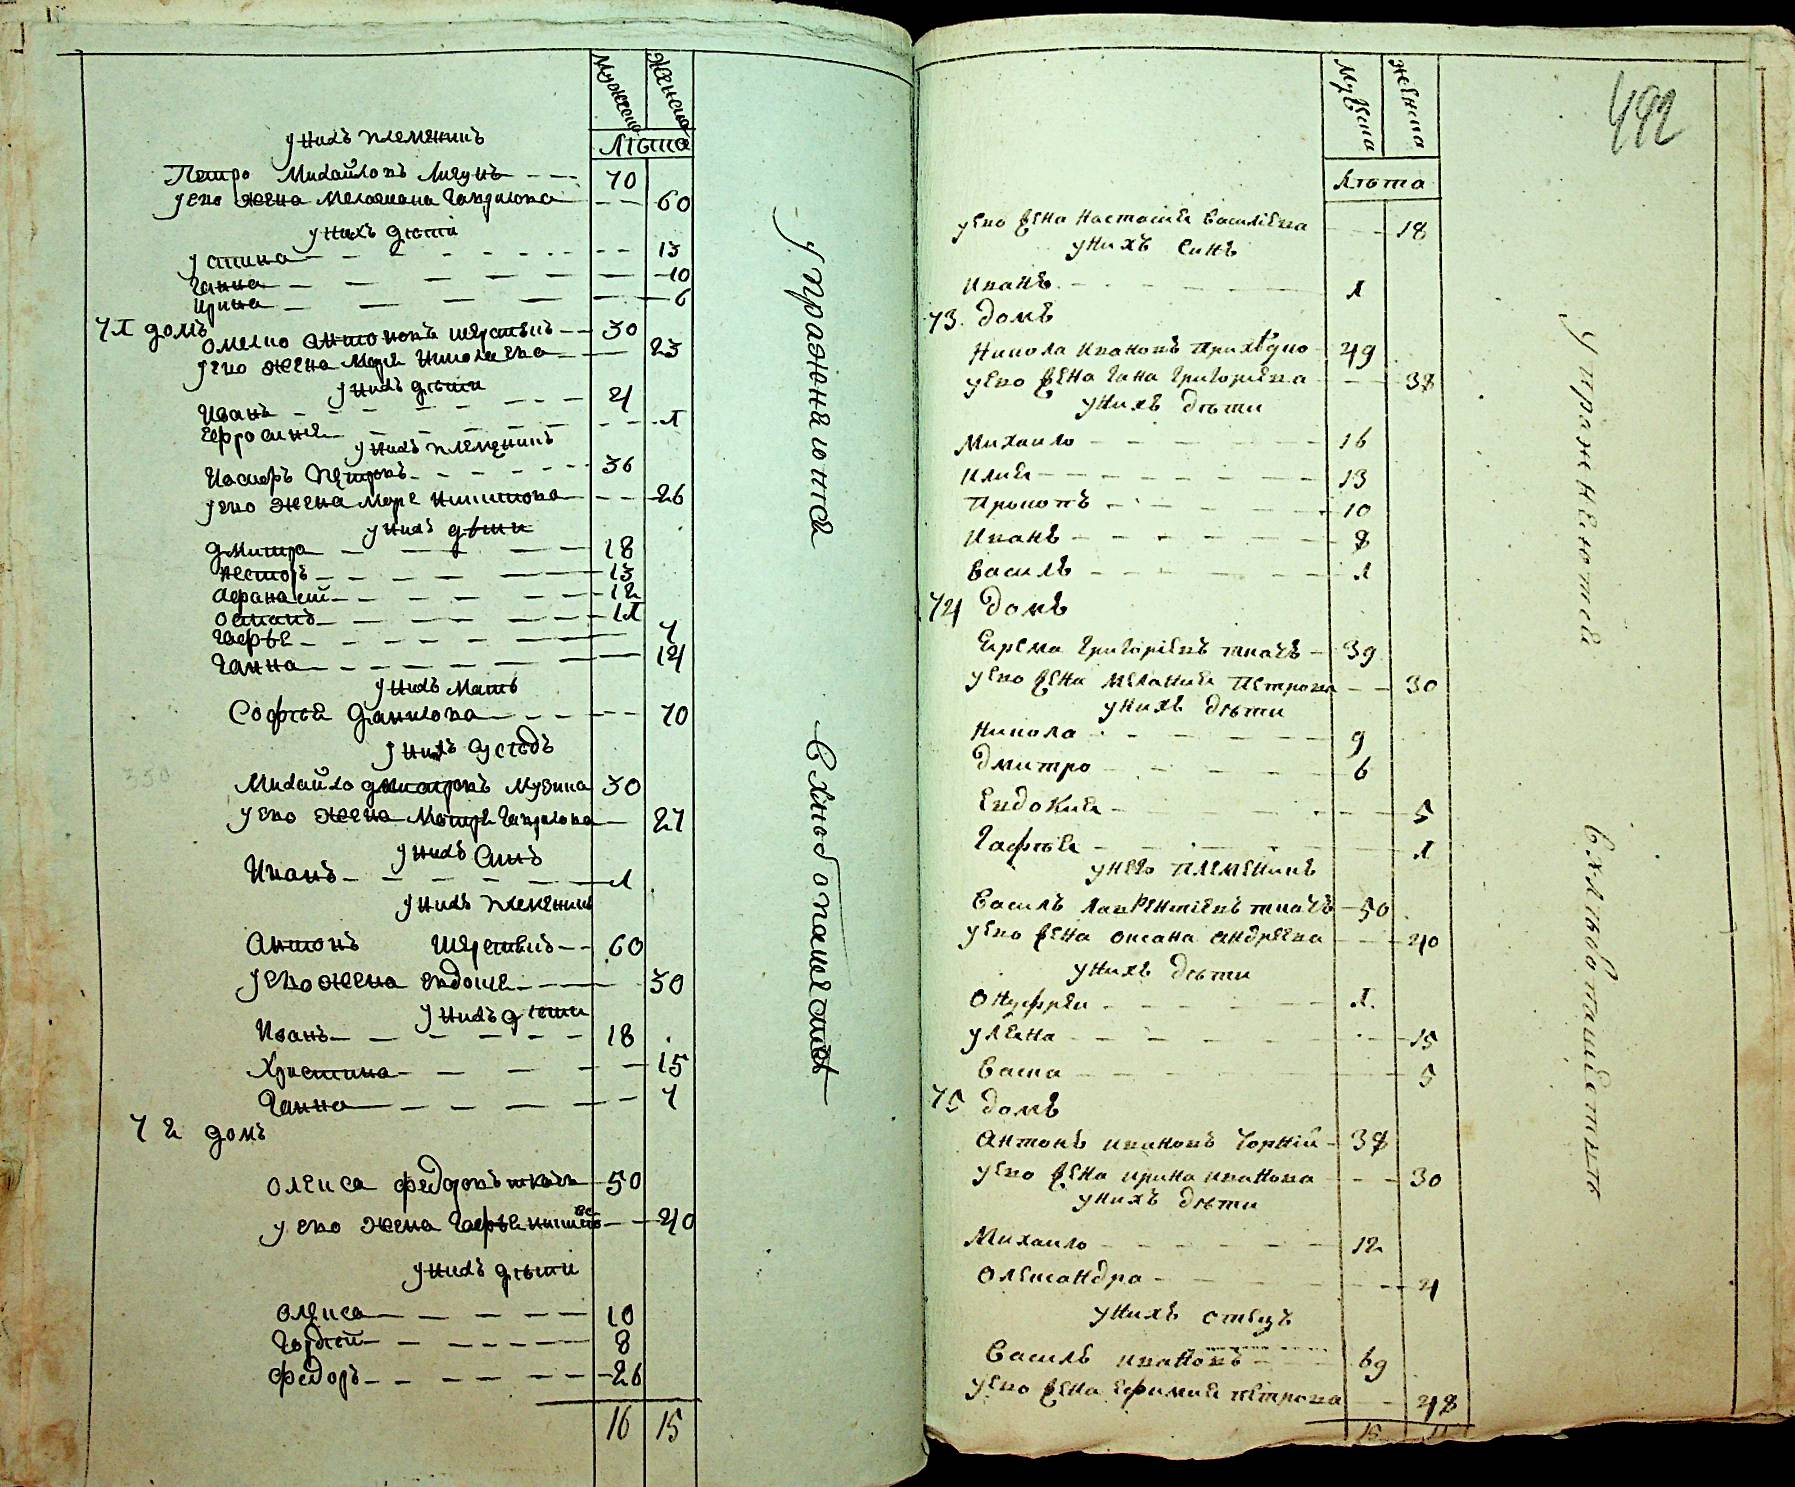 Мужеска
Женска
Лѣта
у нихъ племеникъ
Петро Михайловъ 70
у его жена Гаврилова 60
у нихъ дѣти
устина 13
Ганна 10
ирина 6
71 домъ
омелко антоновъ шерстюкъ 30
у его жена Марѣ Николаева 23
у нихъ дѣти
Иванъ 4
Ефросинѣ 1
у нихъ племеникъ
Касперъ Петровъ 36
у его жена Марѣ Никитова 26
у нихъ дѣти
дмитро 18
несторъ 13
афанасей 12
остапъ 11
Гафѣе 7
Ганна 14
у нихъ мать
Софѣе данилова 70
у нихъ сусѣдъ
Михайло дмитровъ музика 30
у его жена Мотрѣ Гаврилова 27
у нихъ синъ
Иванъ 1
у нихъ племеникъ
Антонъ шерстюкъ 60
у его жена евдоше 50
у нихъ дѣти
Иванъ 18
Христина 15
Ганна 7
72 домъ
олекса федоровъ ткачъ 50
у его жена Гафѣе 40
у нихъ дѣти
олекса 10
Гордѣй 8
федоръ 26
16 15
упражнеются
в хлѣбопашестве
492
Мужеска
женска
лѣта
у его жена настасие василіевна 18
у нихъ синъ
иванъ 1
73 домъ
никола ивановъ прихѣдко 49
у его жена гана григориевна 38
у нихъ дѣти
михаило 16
илие 13
прокопъ 10
иванъ 8
василь 1
74 домъ
ерема григоріевъ ткачъ 39
у его жена мелание петрова 30
у нихъ дѣти
никола 9
дмитро 6
евдокие 5
гафѣе 1
у него племеникъ
василь лаврентіевъ ткачъ 50
у его жена оксана андреева 40
у нихъ дѣти
онуфрѣи 1
улеяна 15
васка 5
75 домъ
антонъ ивановъ чорній 38
у его жена ирина иванова 30
у нихъ дѣти
михаило 12
олександра 4
у нихъ отецъ
василь ивановъ 69
у его жена ефимие петрова 48
15 11
упражнеются
в хлѣбопашествѣ